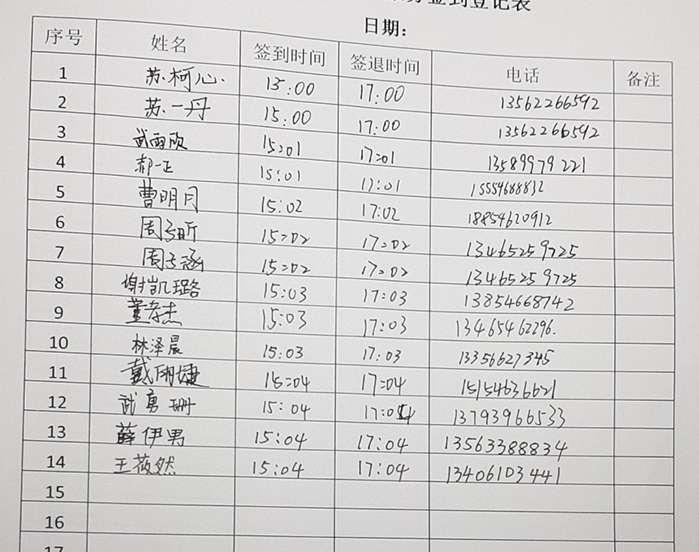 签到登记表
日期:
序号 姓名 签到时间 签退时间 电话 备注
1 苏柯心 15:00 17:00 13562266592
2 苏一丹 15:00 17:00 13562266592
3 武雨欣 15:01 17:01 13589979221
4 郝一正 15:01 17:01 15554688832
5 曹明月 15:02 17:02 18854620912
6 周子昕 15:02 17:02 13465259725
7 周子涵 15:02 17:02 13465259725
8 谢凯璐 15:03 17:03 13854668742
9 董孝杰 15:03 17:03 13465462296.
10 林泽晨 15:03 17:03 13356627345
11 戴雨婕 15:04 17:04 15154636621
12 武勇珊 15:04 17:04 13793966533
13 薛伊男 15:04 17:04 13563388834
14 王薇然 15:04 17:04 13406103441
15
16
17